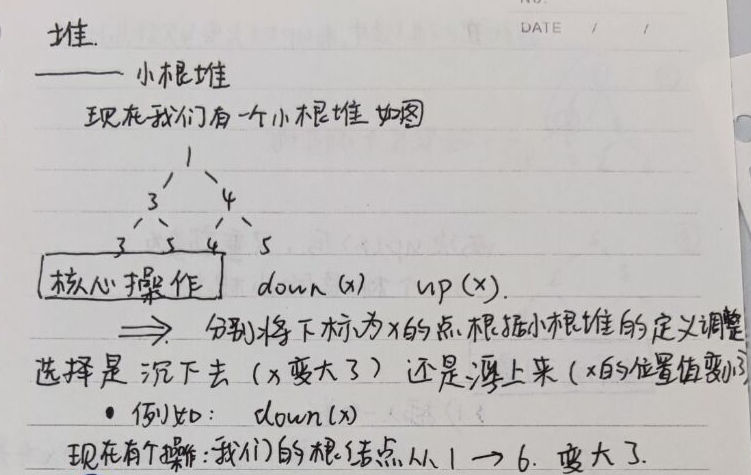 NO.
DATE / /
堆.
—— 小根堆
现在我们有一个小根堆 如图
1
3 4
3 5 4 5
核心操作 down(x) up(x).
⇒ 分别将下标为x的点根据小根堆的定义调整
选择是 沉下去 (x变大了) 还是 浮上来 (x的位置值变小了)
• 例如: down(x)
现在有个操作: 我们的根结点从 1 → 6. 变大了.